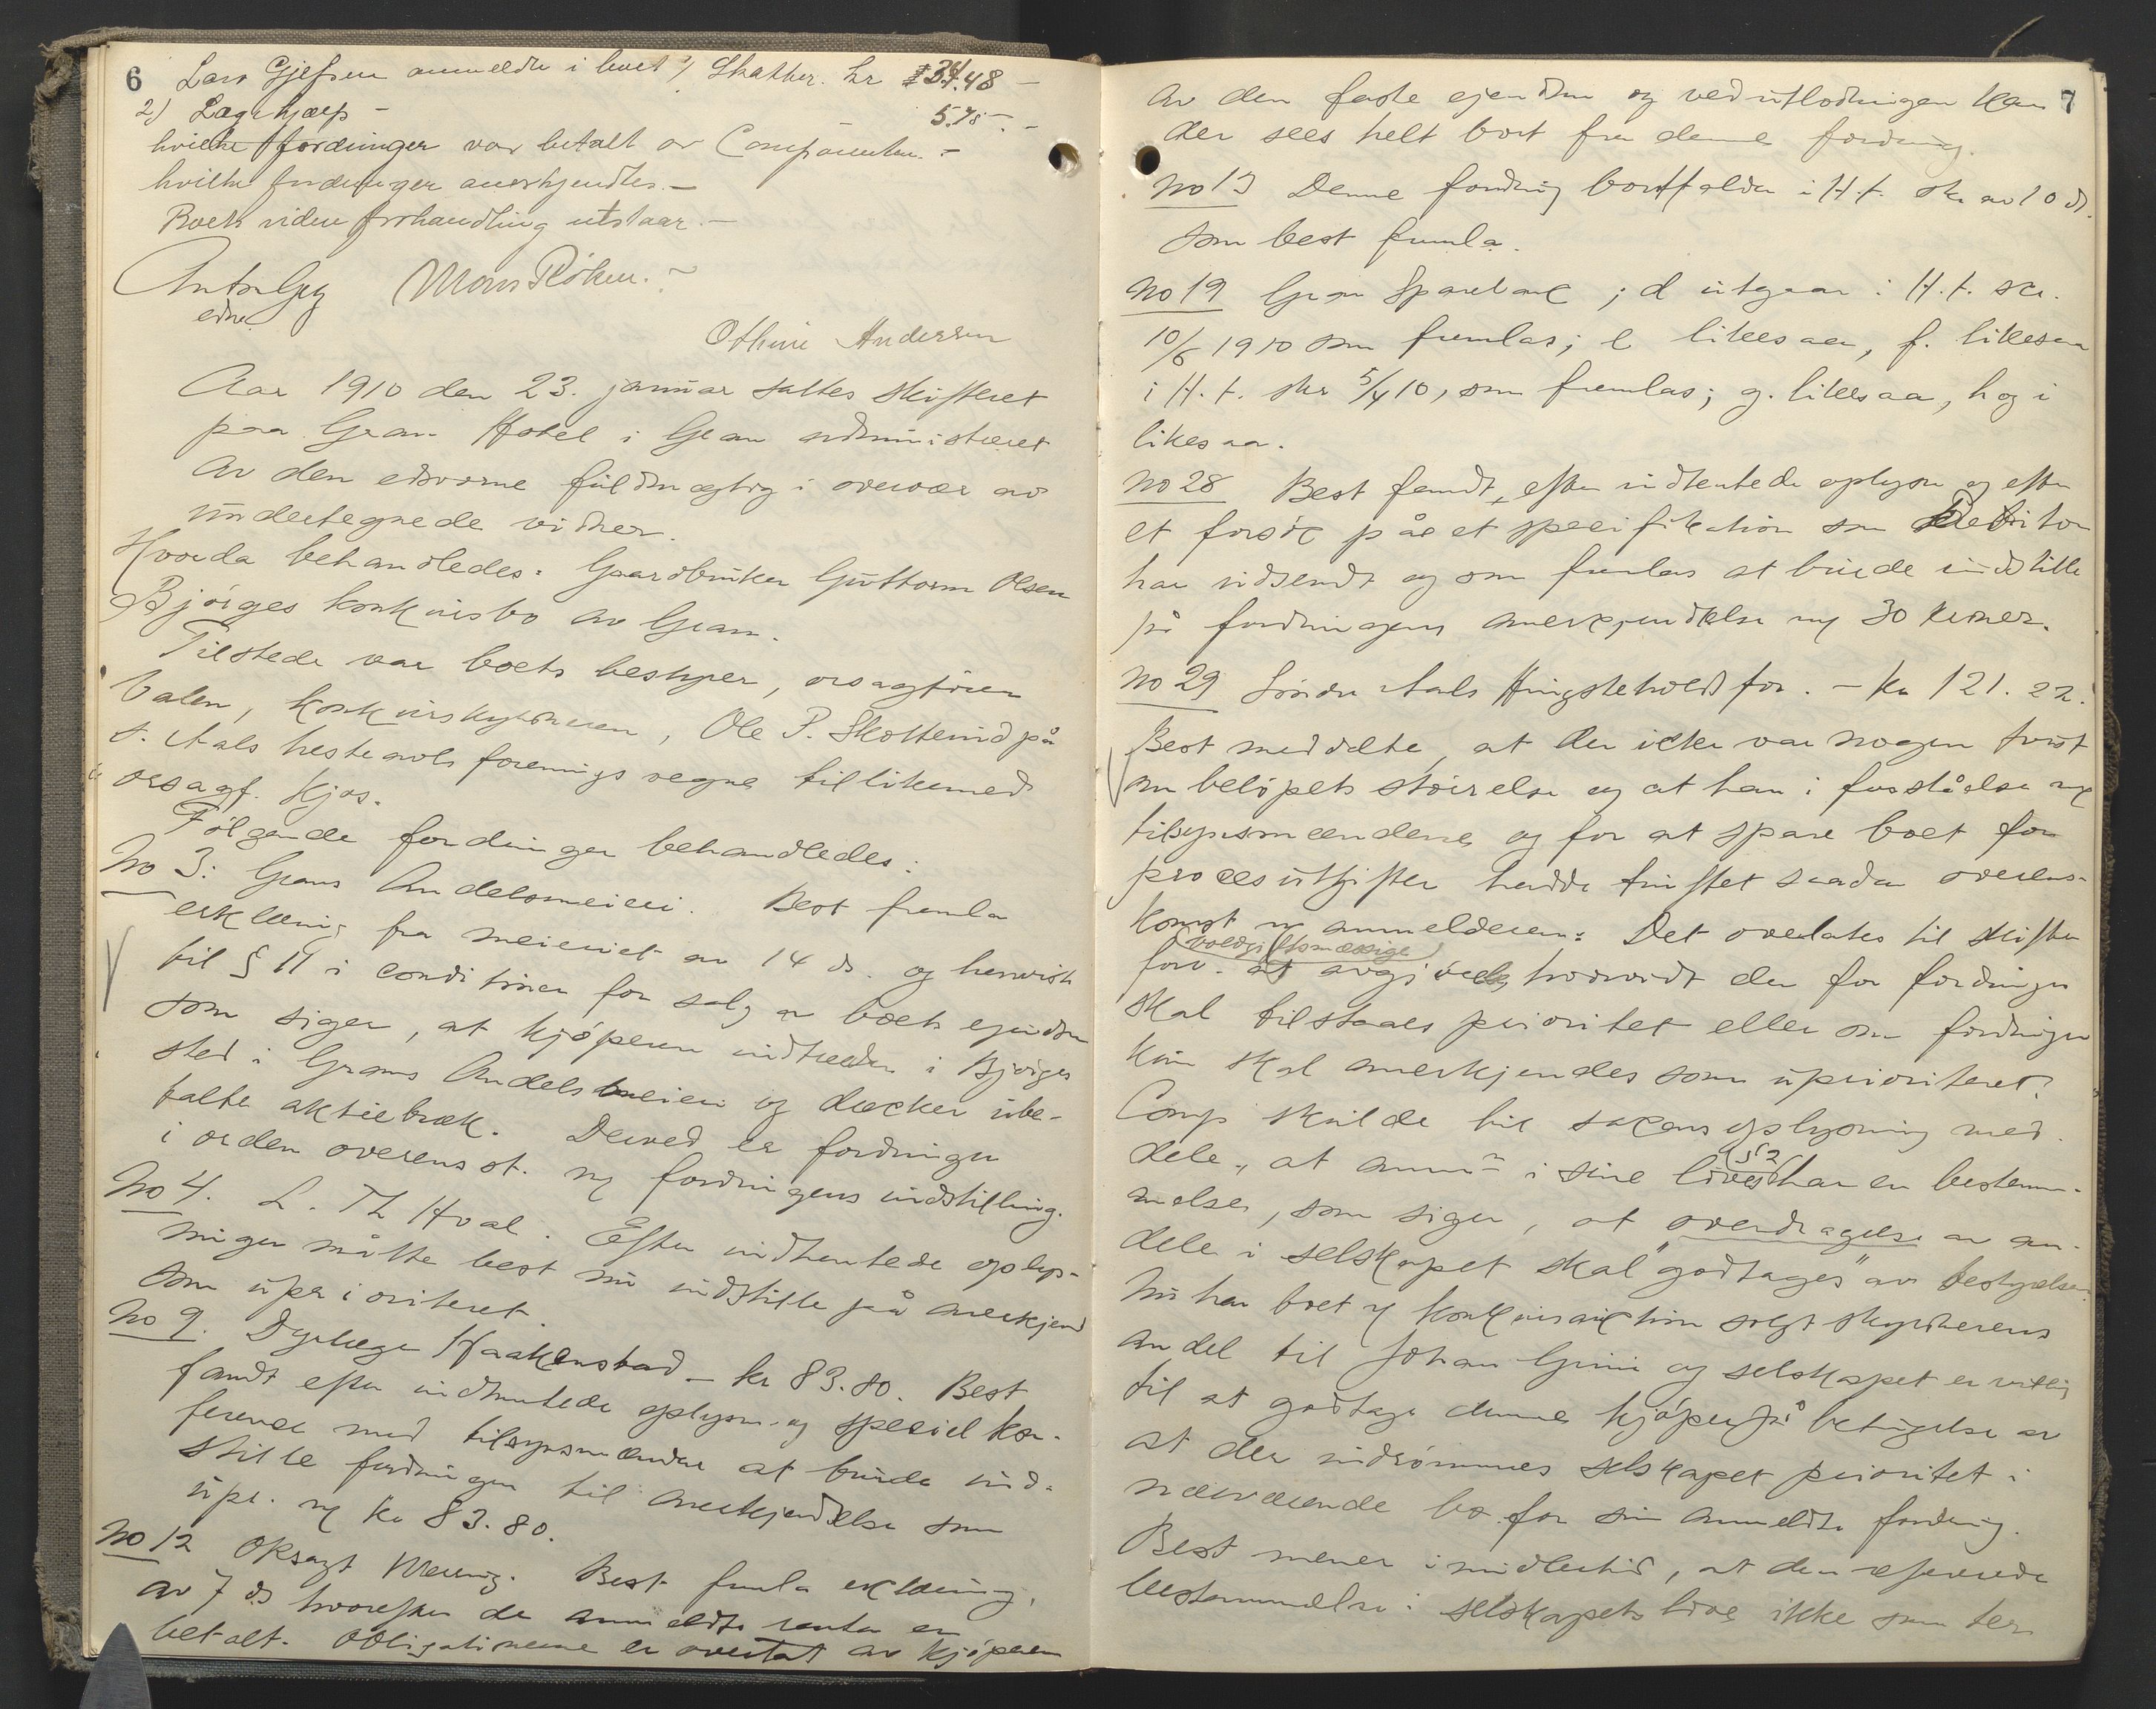 6 Lars Gjefsen anmeldte i boet 1) Skatter. kr 34.48 —
2) Lægehjælp — 5.75 —
hvilke fordringer var betalt av Comparenten. —
hvilke fordringer anerkjendtes. —
Boets videre forhandling utstaar. —
Mons Röken.
edsv.
Othine Andersen
Aar 1910 den 23. januar sattes skifteret
paa Gran Hotel i Gran administreret
av den edsvorne fuldmægtig i overvær av
undertegnede vidner.
Hvorda behandledes: Gaardbruker Guttorm Olsen
Bjørges konkursbo av Gran.
Tilstede var boets bestyrer, orsagfører
Valen, konkursskyldneren, Ole P. Skotterud på
S. Aals hesteavls forenings vegne tillikemed
orsagf. Kjos.
Følgende fordringer behandledes:
No 3: Grans Andelsmeieri. Best fremla
erklæring fra meieriet av 14 ds. og henviste
til § 11 i conditioner for salg av boets eiendom
som siger, at kjøperen indtræder i Bjørges
sted i Grans Andelsmeieri og dækker ube-
talte aktiebræk. Derved er fordringen
i orden overensst. m fordringens indstilling.
No 4. L. Th Hval. Efter indhentede oplys-
ninger måtte best nu indstille på anerkjend
som uprioriteret.
No 9. Dyrlæge Haakenstad — kr 83.80. Best
fandt efter indhentede oplysn. og speciel kon-
ference med tilsynsmændene at burde ind-
stille fordringen til anerkjendelse som
upr. m kr 83.80.
No 12 Oksagt Best fremla erklæring
av 7 ds hvorefter de anmeldte renter er
betalt. Obligationerne er overtat av kjøperen
7
av den faste ejendom og ved utlodningen kan
der sees helt bort fra denne fordring.
No 13 Denne fordring bortfalder i H.t. skr av 10 ds.
som best fremla.
No 19 Gran Sparebank; d utgaar i H.t. skr.
10/6 1910 som fremlas; e likesaa, f. likesaa
i H.t. skr 5/4 10, som fremlas; g. likesaa, h og i
likesaa.
No 28 Best fandt, efter indhentede oplysn og efter
et forsøk på et specifikation som Debitor
har indsendt og som fremlas at burde indstille
på fordringens anerkjendelse m 30 kroner.
No 29 Søndre Aals Hingsteholdsfor. — kr 121.22.
Best meddelte, at der ikke var nogen tvist
om beløpets størrelse og at han i forståelse m
tilsynsmændene og for at spare boet for
procesutgifter hadde truffet saadan overens-
komst m anmelderen: Det overlates til skifte
(voldgiftsmæssige)
forv. at avgjøre hvorvidt der for fordringen
skal tilstaaes prioritet eller om fordringen
kun skal anerkjendes som uprioriteret.
Comp skulde til sakens oplysning med-
dele, at anm i sine love § 2 har en bestem-
melse, som siger, at overdragelse av an-
dele i selskapet skal "godtages" av bestyrelsen.
Nu har boet v konkursauktion solgt skyldnerens
andel til Johan Grini og selskapet er villig
til at godtage denne kjøper på betingelse av
at der indrømmes selskapet prioritet i
nærværende bo for sin anmeldte fordring.
Best mener imidlertid, at den refererede
bestemmelse i selskapets love ikke som ter